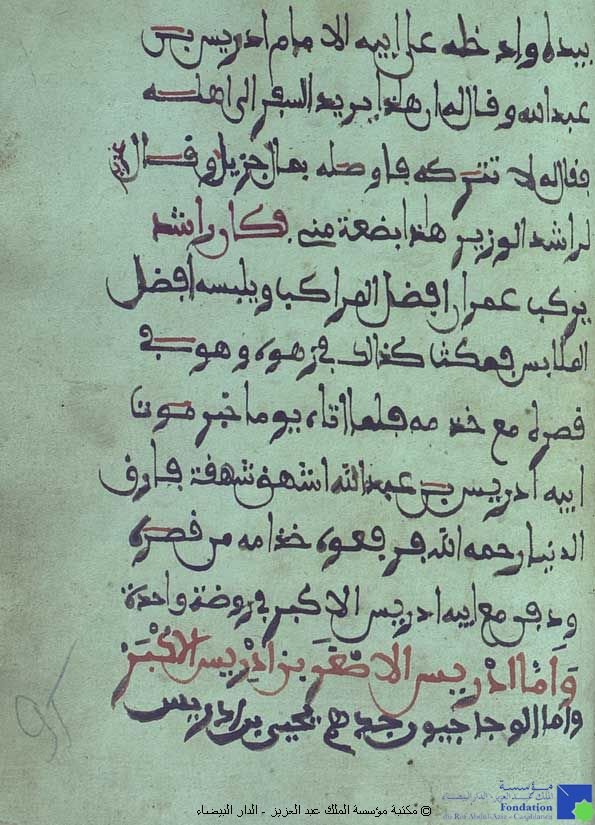 بيده وادخله على ابيه الامام ادريس بن
عبد الله وقال له ان هذا يريد السفر الى اهله
فقال له لا تتركه فاوصله بمال جزيل وقال
لراشد الوزير هذا بضعة مني فكان راشد
يركب عمران افضل المراكب ويلبسه افضل
الملابس فمكث كذالك في زهوه وهو في
قصره مع خدمه فلما اتاه يوما خبر موت
ابيه ادريس بن عبد الله شهق شهقة فارق
الدنيا رحمه الله فرفعوه خدامه من قصره
ودفن مع ابيه ادريس الاكبر في روضة واحدة
وَامّا ادْريس الاصْغَر بن ادْريس الاكْبَر
واما الوجاجيون جدهم يحيى بن ادريس
95
مؤسسة
الملك عبد العزيز - الدار البيضاء
Fondation
du Roi Abdul-Aziz - Casablanca
© مكتبة مؤسسة الملك عبد العزيز - الدار البيضاء